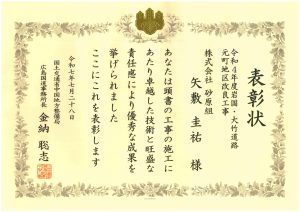 表彰状
令和4年度岩国・大竹道路
元町地区改良工事
株式会社 砂原組
矢敷 圭祐 様
あなたは頭書の工事の施工に
あたり卓越した技術と旺盛な
責任感により優秀な成果を
挙げられました
ここにこれを表彰します
令和七年七月二十八日
国土交通省中国地方整備局
広島国道事務所長
金納 聡志